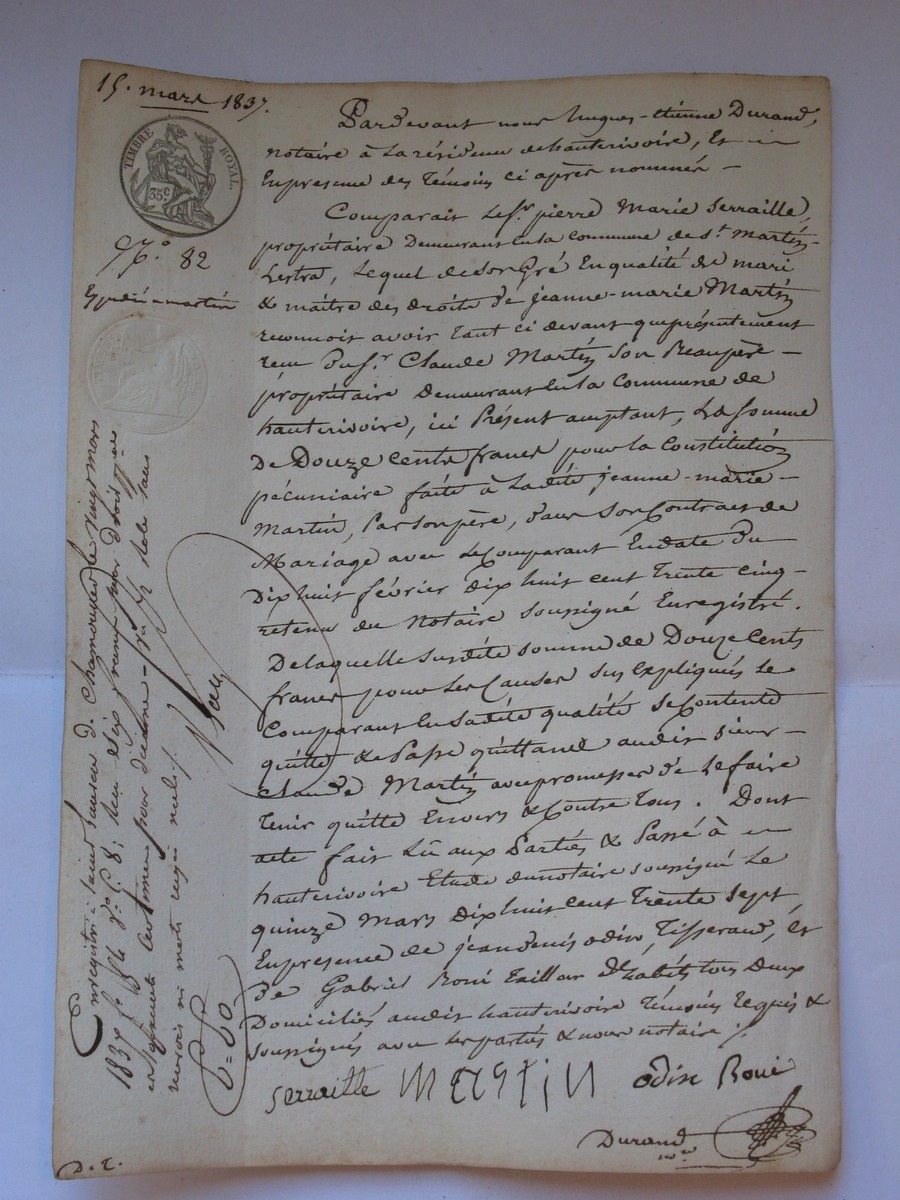 15. mars 1837.
TIMBRE ROYAL.
35 c
N.° 82
Expédié a martin
Pardevant nous hugues-étienne Durand,
notaire à La résidence de hauterivoire, Et
En presence des Témoins ci après nommés –
Comparait Le S.r pierre Marie Serraille,
propriétaire Demeurant En la Commune de S.t Martin-
Lestra, Lequel de son Gré En qualité de mari
& maître des droits de jeanne-marie Martin
reconnoit avoir Tant ci devant que présentement
reçu Du S.r Claude Martin Son Beaupère –
propriétaire Demeurant En la Commune de
hauterivoire, ici Présent acceptant, La Somme
De Douze Cents francs pour la Constitution
pécuniaire faite à Ladite jeanne-marie-
Martin, Par Son père, dans Son Contract de
Mariage avec Le Comparant En date Du
Dix huit février dix huit cent Trente cinq-
retenu du Notaire Soussigné Enregistré.
De laquelle Susdite Somme de Douze Cents
francs pour Les Causes Sus Expliquées Le
Comparant En Sadite qualité Se Contente
quitte & Passe quittance audit Sieur –
Claude Martin avec promesses de Le faire
Tenir quitte Envers & Contre Tous. Dont
acte fait Lû aux Parties & Passé à
hauterivoire Etude du notaire soussigné Le
quinze Mars Dix huit cent Trente Sept,
En presence de jean denis odin, Tisserand, Et
De Gabriel Roni Tailleur D'habits tous Deux
Domiciliés audit hauterivoire Témoins requis &
Soussignés avec Les parties & nous notaire
serraille MARTIN odin Roni
Durand
D. C.
Enregistré à Saint Laurent de Chamousset le vingt mars
1837 f.° 54 v.° C. 8; reçu six francs pour droit
et soixante centimes pour décime
renvoi ni mots rayés nuls.